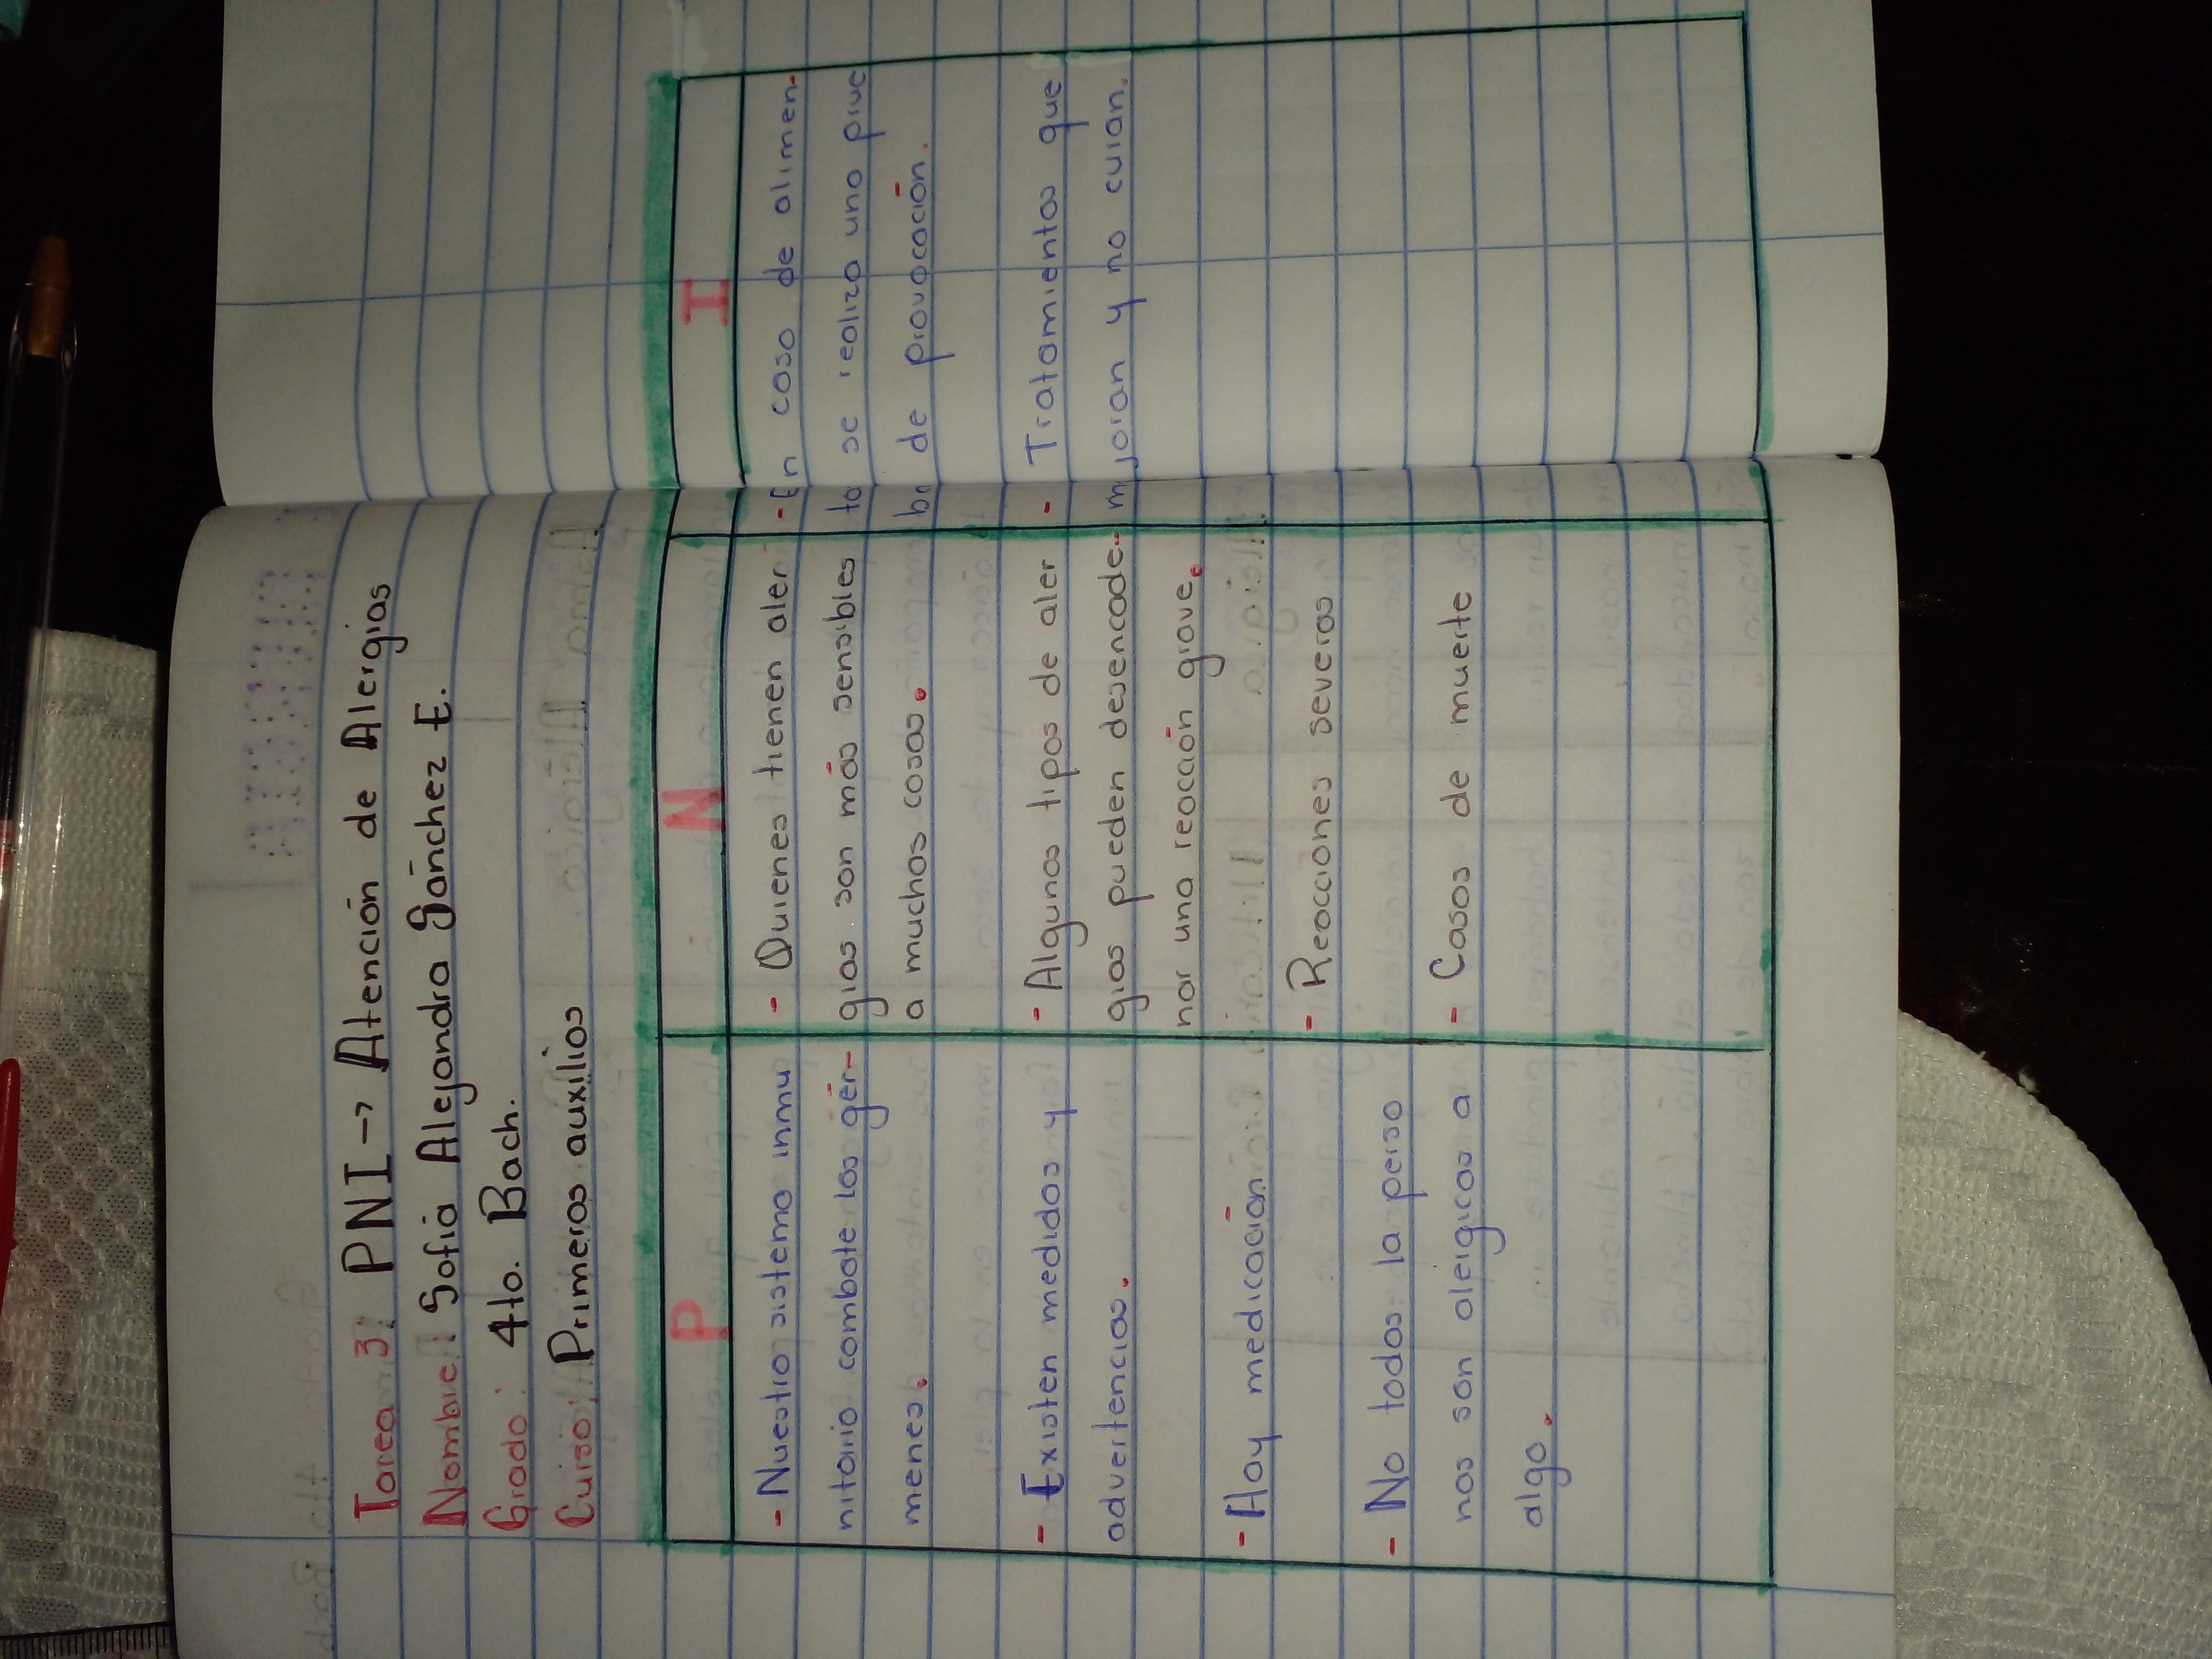 Tarea 3: PNI → Atención de Alergias
Nombre: Sofía Alejandra Sánchez E.
Grado: 4to. Bach.
Curso: Primeros auxilios
P
- Nuestro sistema inmu
nitario combate los gér-
menes.
- Existen medidas y
advertencias.
- Hay medicación
- No todas la perso
nas son alergicas a
algo.
N
- Quienes tienen aler
gias son más sensibles
a muchas cosas.
- Algunos tipos de aler
gias pueden desencade-
nar una reacción grave.
- Reacciones severas
- Casos de muerte
I
- En caso de alimen-
to se realiza una prue
ba de provocación.
- Tratamientos que
mjoran y no curan.